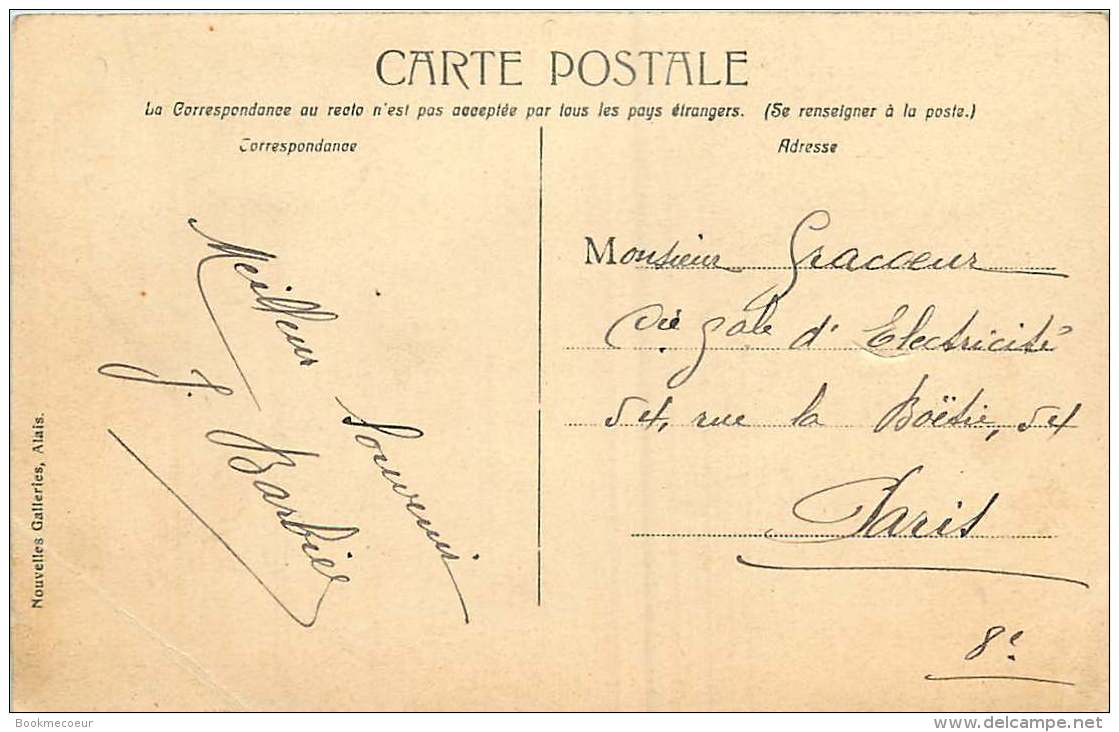 CARTE POSTALE
La Correspondance au recto n'est pas acceptée par tous les pays étrangers. (Se renseigner à la poste.)
Correspondance
Meilleur Souvenir
J. Barbier
Adresse
Monsieur Gracoeur
Cie gale d'Electricité
54, rue la Boëtie, 54
Paris
8e
Nouvelles Galleries, Alais.
Bookmecoeur
www.delcampe.net